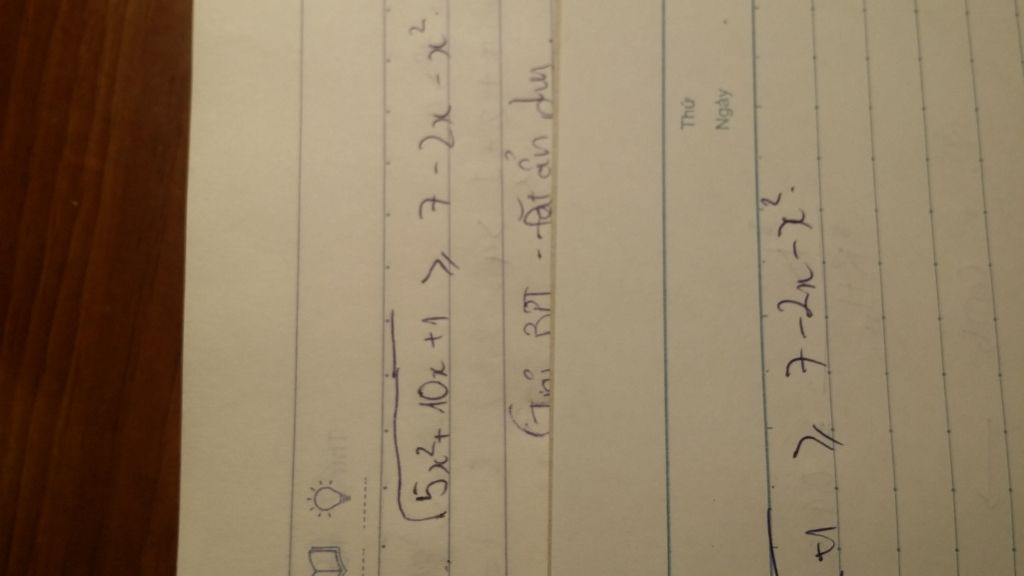 √5x²+10x+1 ≥ 7 - 2x - x².
(Giải BPT - Đặt ẩn phụ
Thứ
Ngày
+1 ≥ 7 - 2x - x².